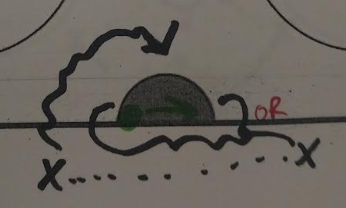 OR
X
X